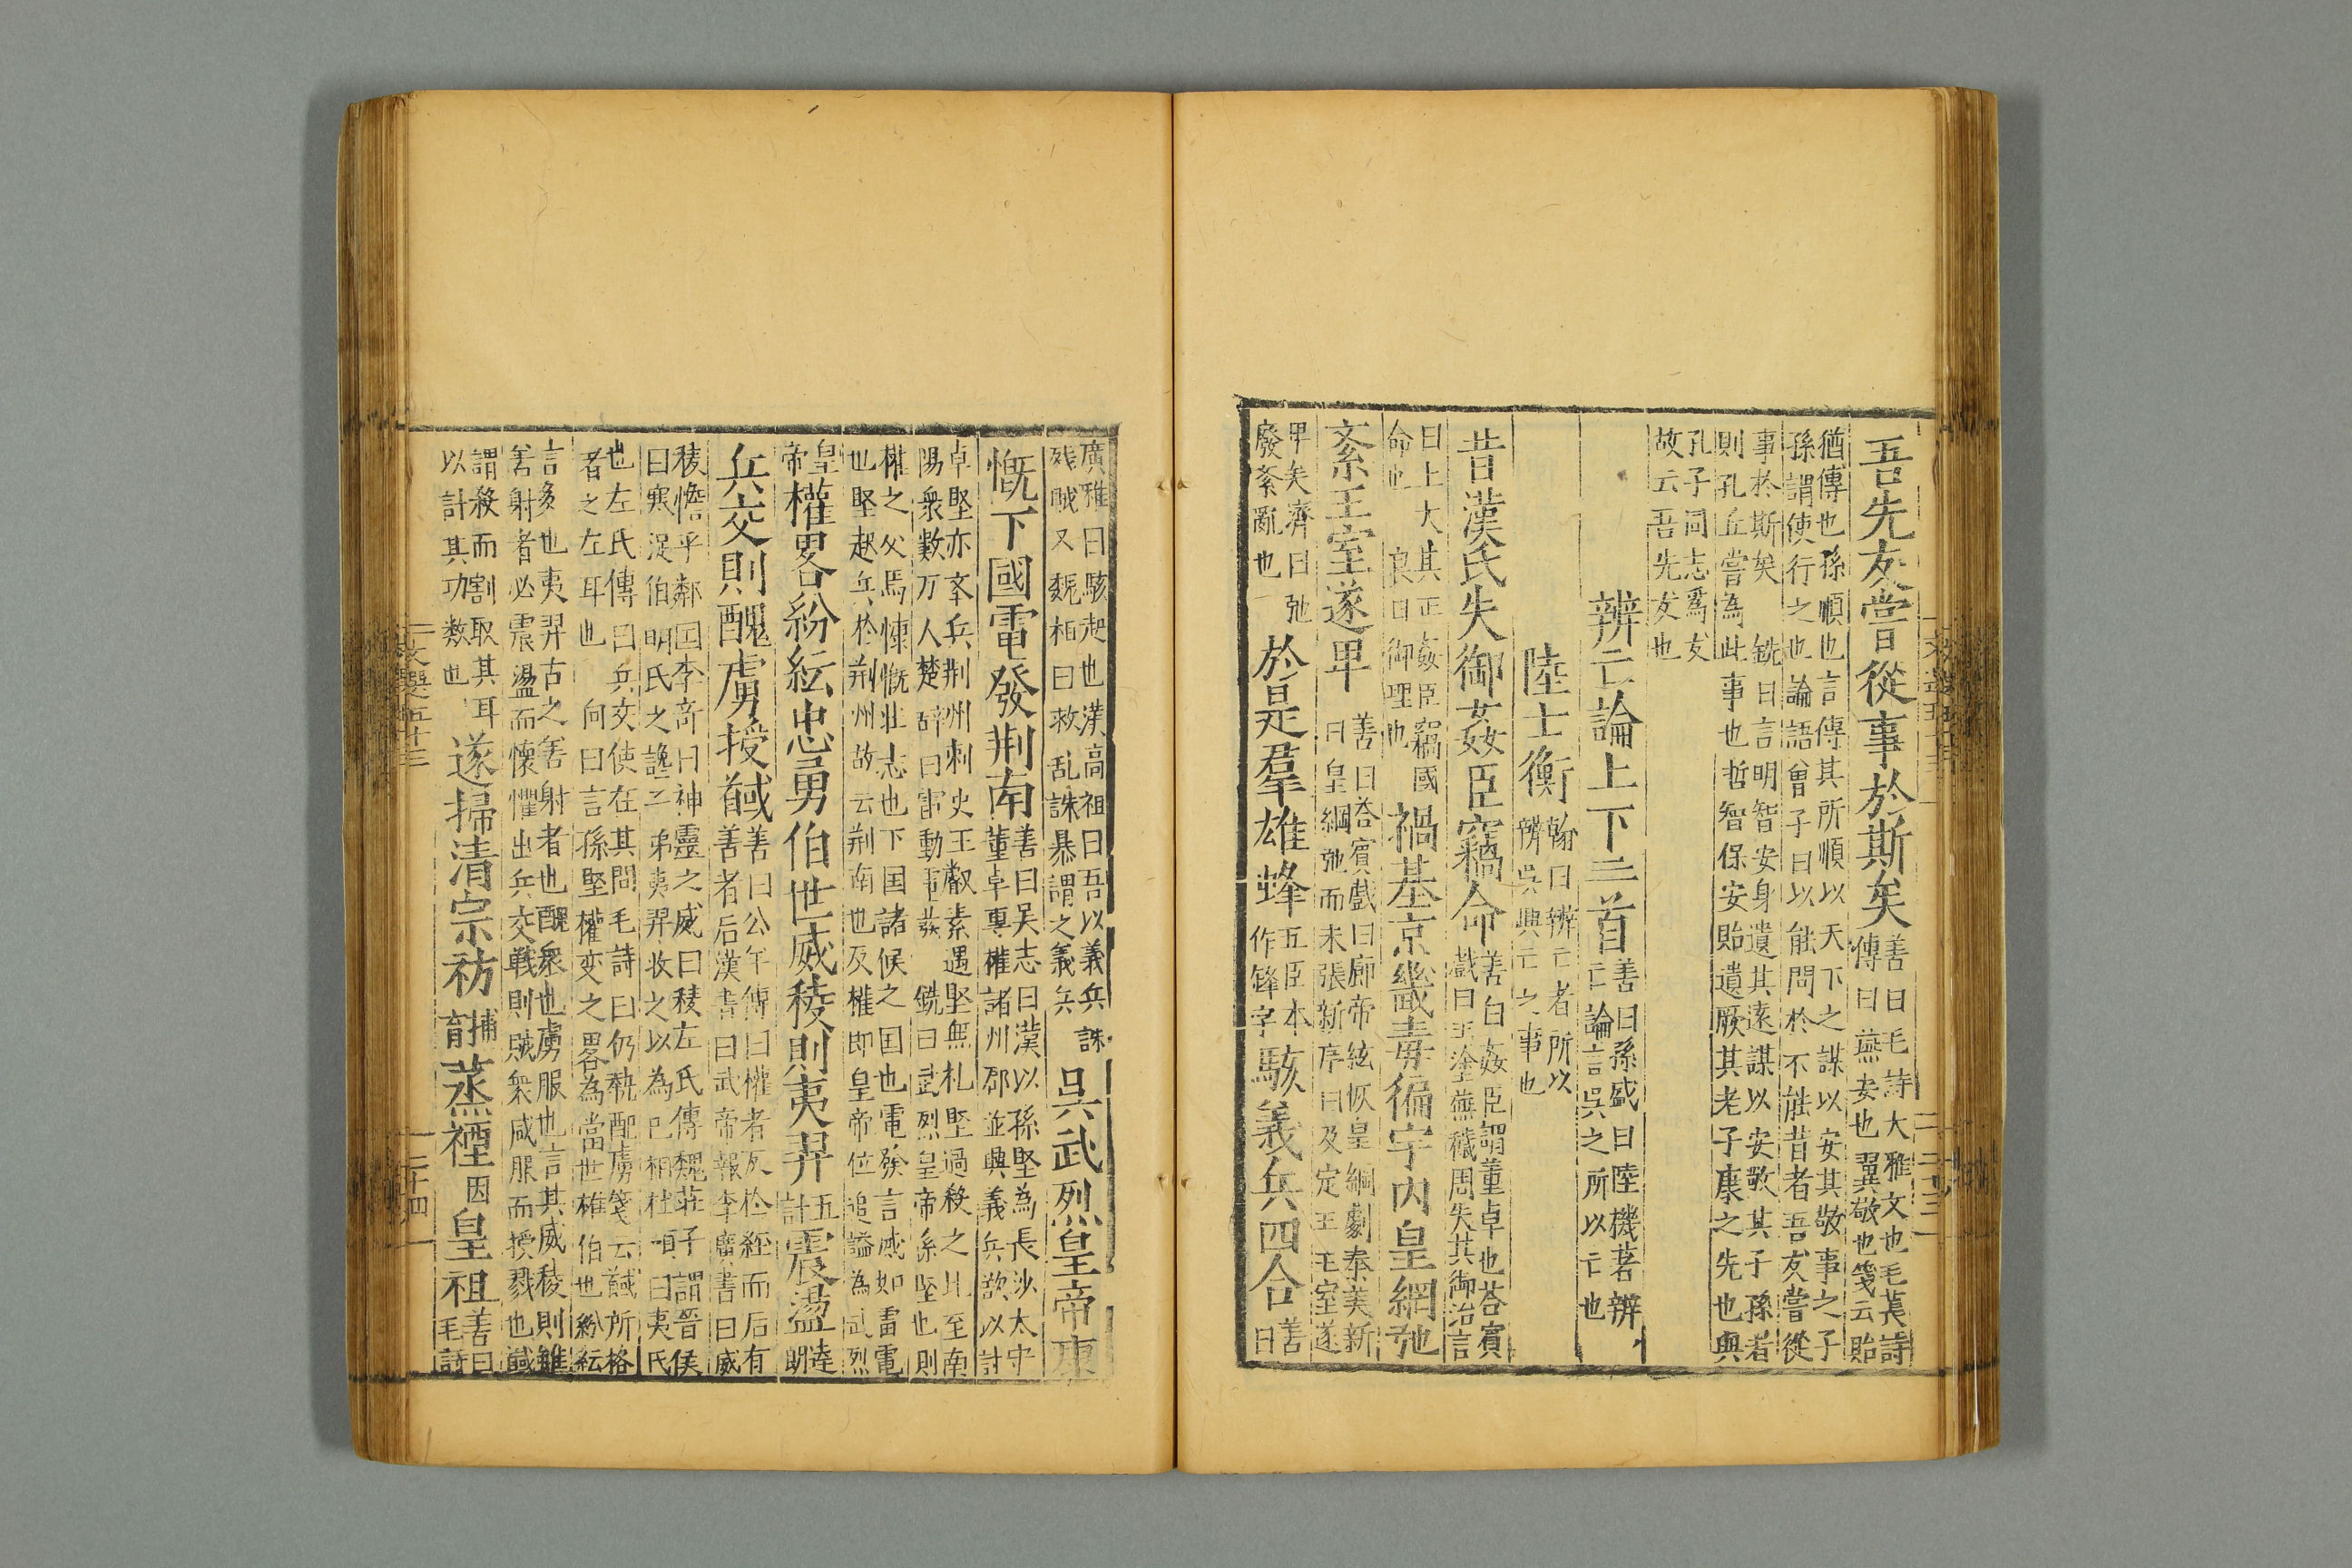 吾先友嘗從事於斯矣善曰毛詩大雅文也毛萇詩
傳曰燕安也翼敬也箋云貽
猶傳也孫順也言傳其所順以天下之謀以安其敬事之子
孫謂使行之也論語曾子曰以能問於不能昔者吾友嘗從
事於斯矣 銑曰言明智安身遺其遠謀以安敬其子孫者
則孔丘嘗為此事也哲智保安貽遺厥其老子康之先也與
孔子同志爲友
故云吾先友也
辨亡論上下二首善曰孫盛曰陸機著辨
亡論言吳之所以亡也
陸士衡翰曰辨亡者所以
辨吳興亡之事也
昔漢氏失御姦臣竊命善曰姦臣謂董卓也荅賓
戲曰王塗蕪穢周失其御治言
曰上大其正姦臣竊國
命也 良曰御理也
禍基京畿毒徧宇内皇綱弛
紊王室遂卑善曰荅賓戲曰廓帝絃恢皇綱劇秦美新
曰皇綱弛而未張新序曰及定王王室遂
卑矣濟曰弛
廢紊亂也
於是羣雄蜂五臣本
作鋒字
駭義兵四合善
曰
廣雅曰駭起也漢高祖曰吾以義兵誅
残賊又魏相曰救乱誅暴謂之義兵
吳武烈皇帝東
慨下國電發荆南善曰吳志曰漢以孫堅為長沙太守
董卓專權諸州郡並興義兵欲以討
卓堅亦𡴞兵荆州刺史王叡素遇堅無礼堅過殺之比至南
陽衆數万人楚辞曰雷動電發 銑曰武烈皇帝孫堅也則
權之父焉慷慨壯志也下国諸候之国也電發言威如雷電
也堅起兵於荆州故云荆南也及權即皇帝位追謚為武烈
皇
帝
權畧紛紜忠勇伯世威稜則夷羿五
計
震盪陸
明
兵交則醜虜授馘善曰公羊傳曰權者反於經而后有
善者后漢書曰武帝報李廣書曰威
稜憺乎鄰国李竒曰神靈之威曰稜左氏傳魏莊子謂晉侯
曰寒浞伯明氏之讒子弟夷羿收之以為己相杜預曰夷氏
也左氏傳曰兵交使在其間毛詩曰仍執醜虜箋云馘所格
者之左耳也 向曰言孫堅權变之畧為當世雄伯也紛紜
言多也夷羿古之善射者也醜衆也虜服也言其威稜則雖
善射者必震盪而懷懼出兵交戰則賊衆咸服而授戮也馘
謂殺而割取其耳
以計其功数也
遂掃清宗祊補
育
蒸禋因
皇祖善曰
毛詩